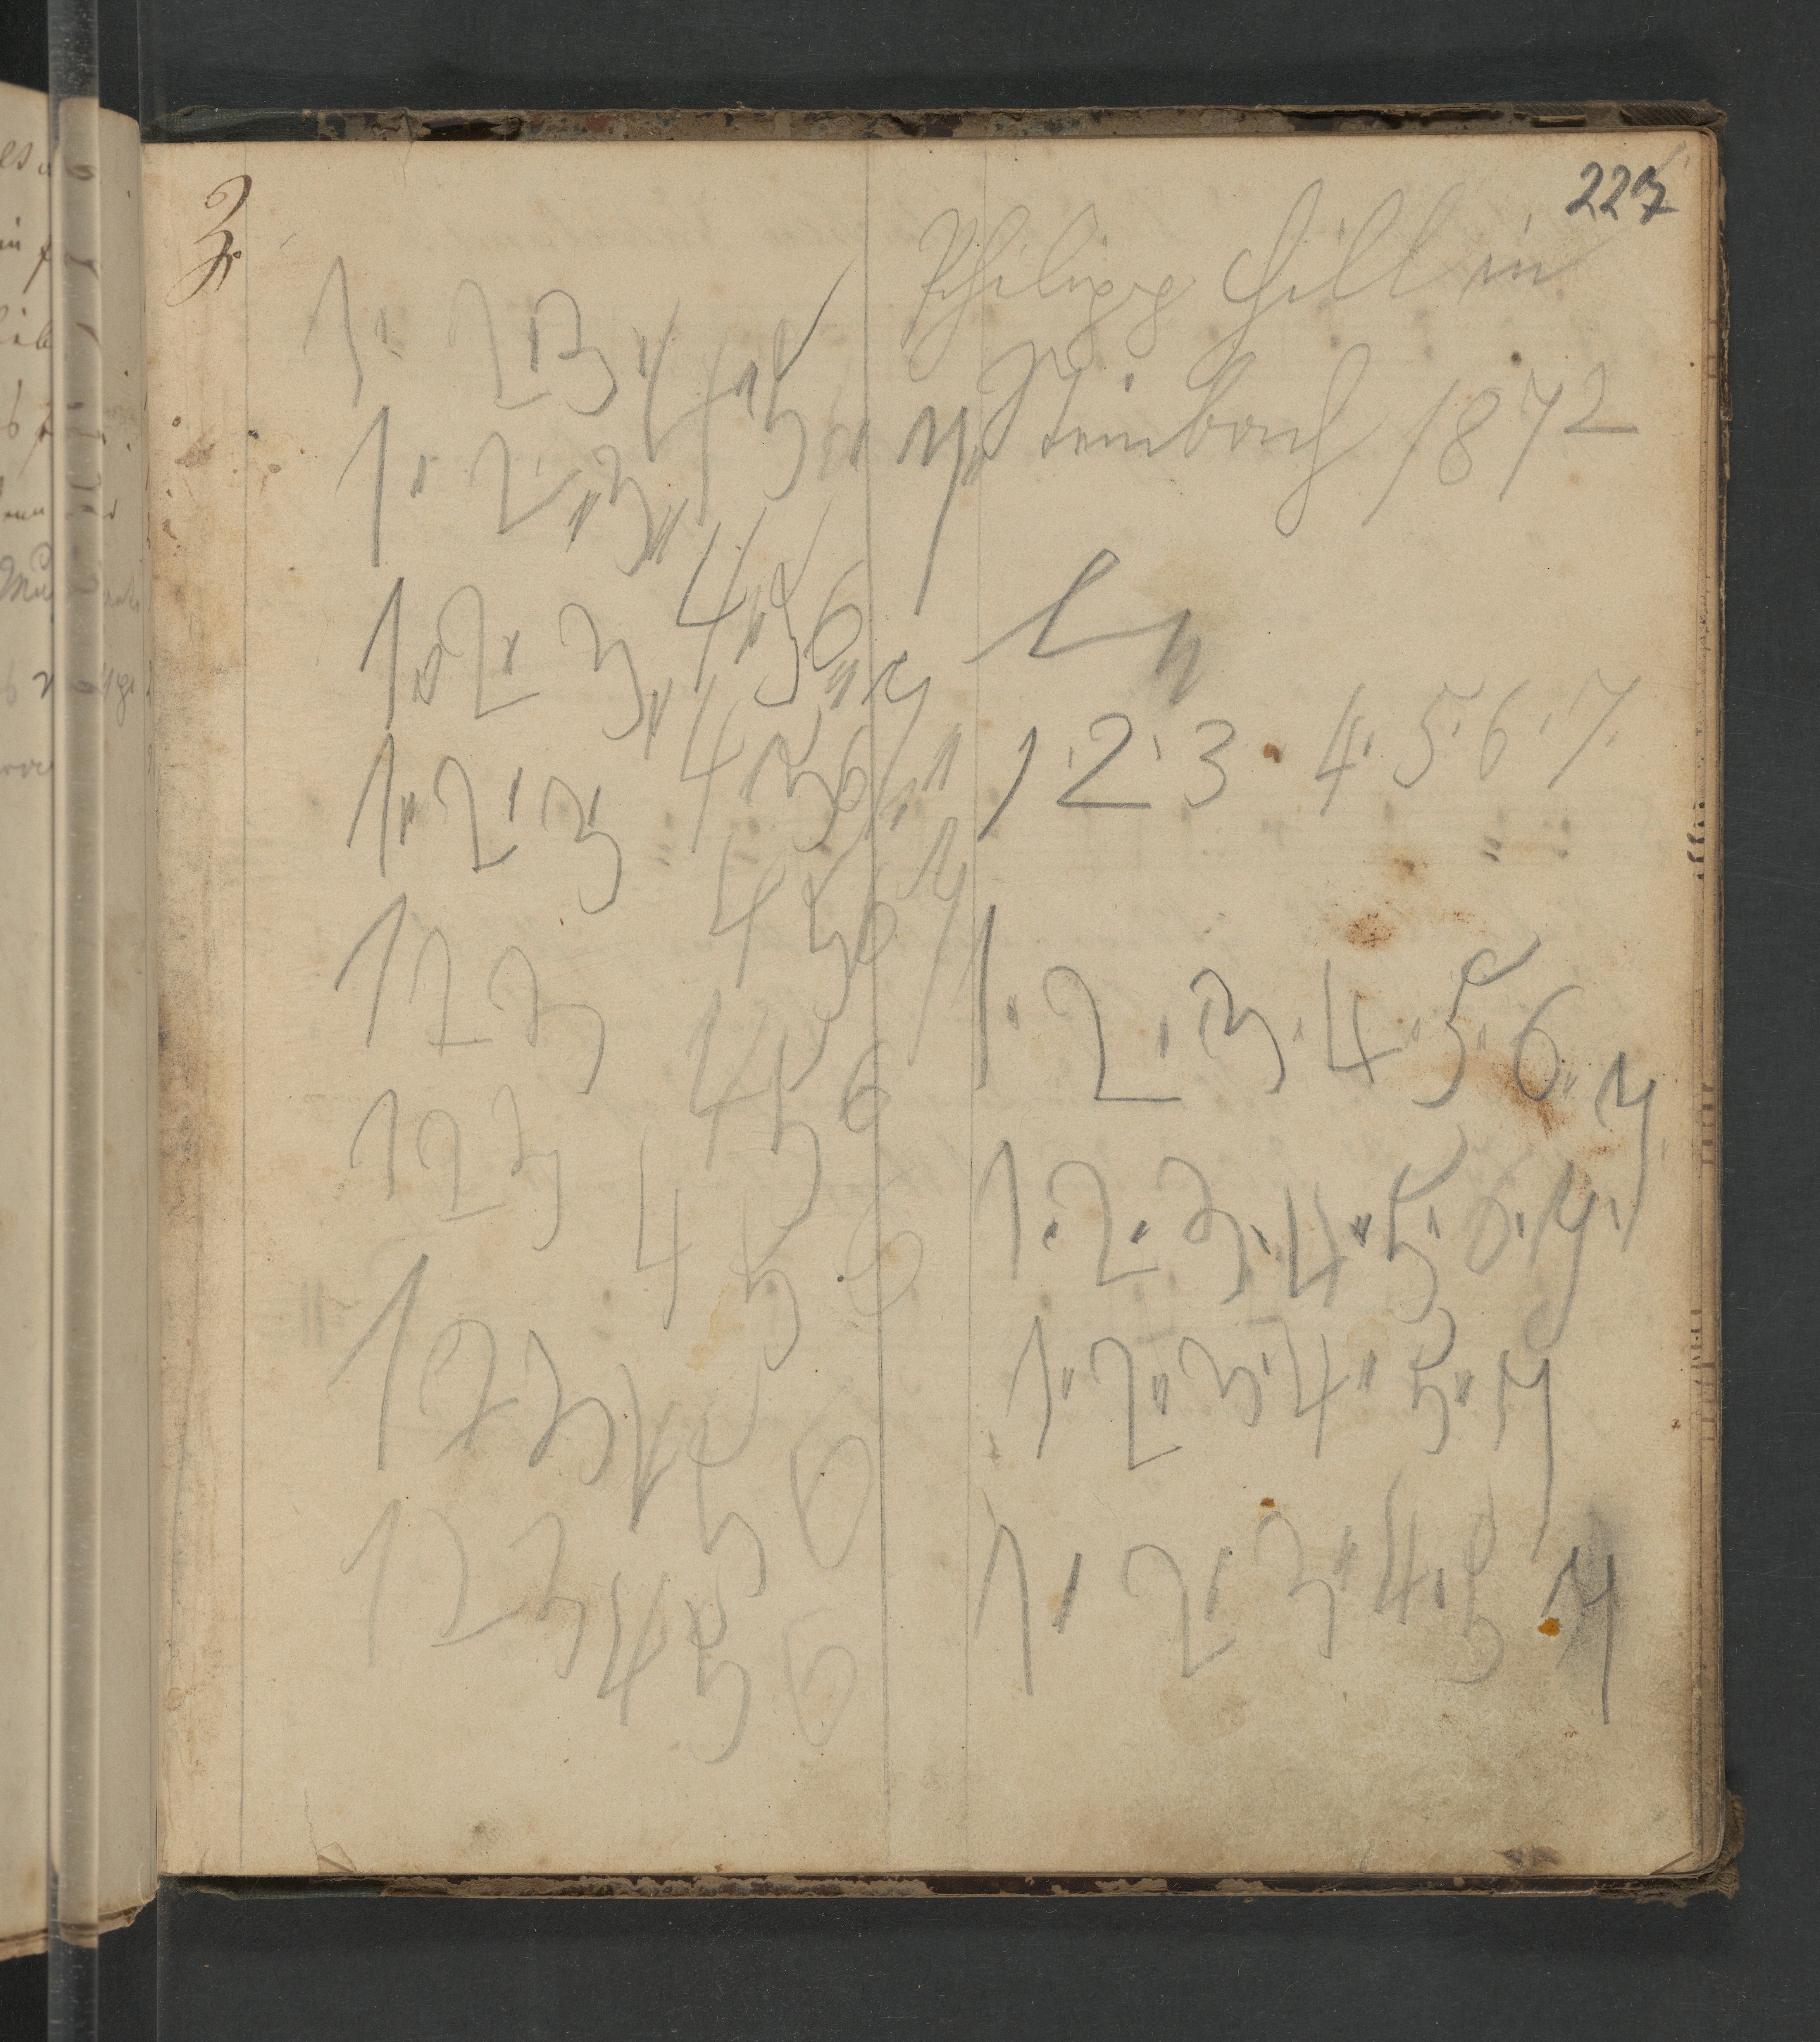 227
3.
Philipp Hill in
Steinbach 1872
1. 2 3 4 5
1 " 2 " 3 " 4 5 " 7 "
1 " 2 " 3 " 4 " 5 6 " 7
1 " 2 ' 3 ' 4 " 5 6 7 "
1 2 3 4 5 6 7
1 2 3 4 5 6
1 2 3 4 5 6
1 2 3 4 5 6
1 ' 2 ' 3 4 ' 5 ' 6 ' 7 '
1 " 2 ' 3 ' 4 ' 5 ' 6 " 7 '
1 ' 2 ' 3 ' 4 " 5 " 6 ' 7 '
1 " 2 " 3 ' 4 " 5 " 7
1 ' 2 ' 3 " 4 ' 5 7